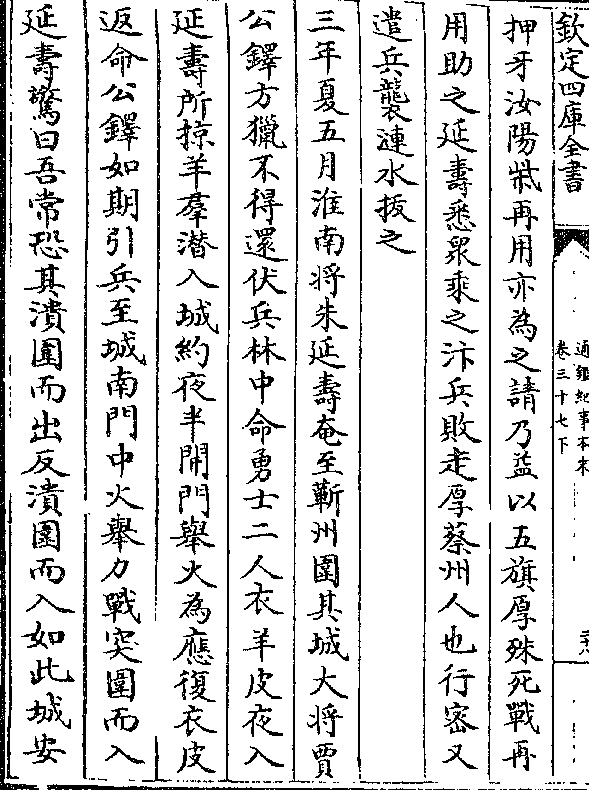 欽定四庫全書
通鑑紀事本末
卷三十七下
押牙汝陽柴再用亦為之請乃益以五旗厚殊死戰再
用助之延壽悉衆乘之汴兵敗走厚蔡州人也行密又
遣兵襲漣水拔之
三年夏五月淮南將朱延壽奄至蘄州圍其城大將賈
公鐸方獵不得還伏兵林中命勇士二人衣羊皮夜入
延壽所掠羊羣潛入城約夜半開門舉火為應復衣皮
返命公鐸如期引兵至城南門中火舉力戰突圍而入
延壽驚曰吾常恐其潰圍而出反潰圍而入如此城安